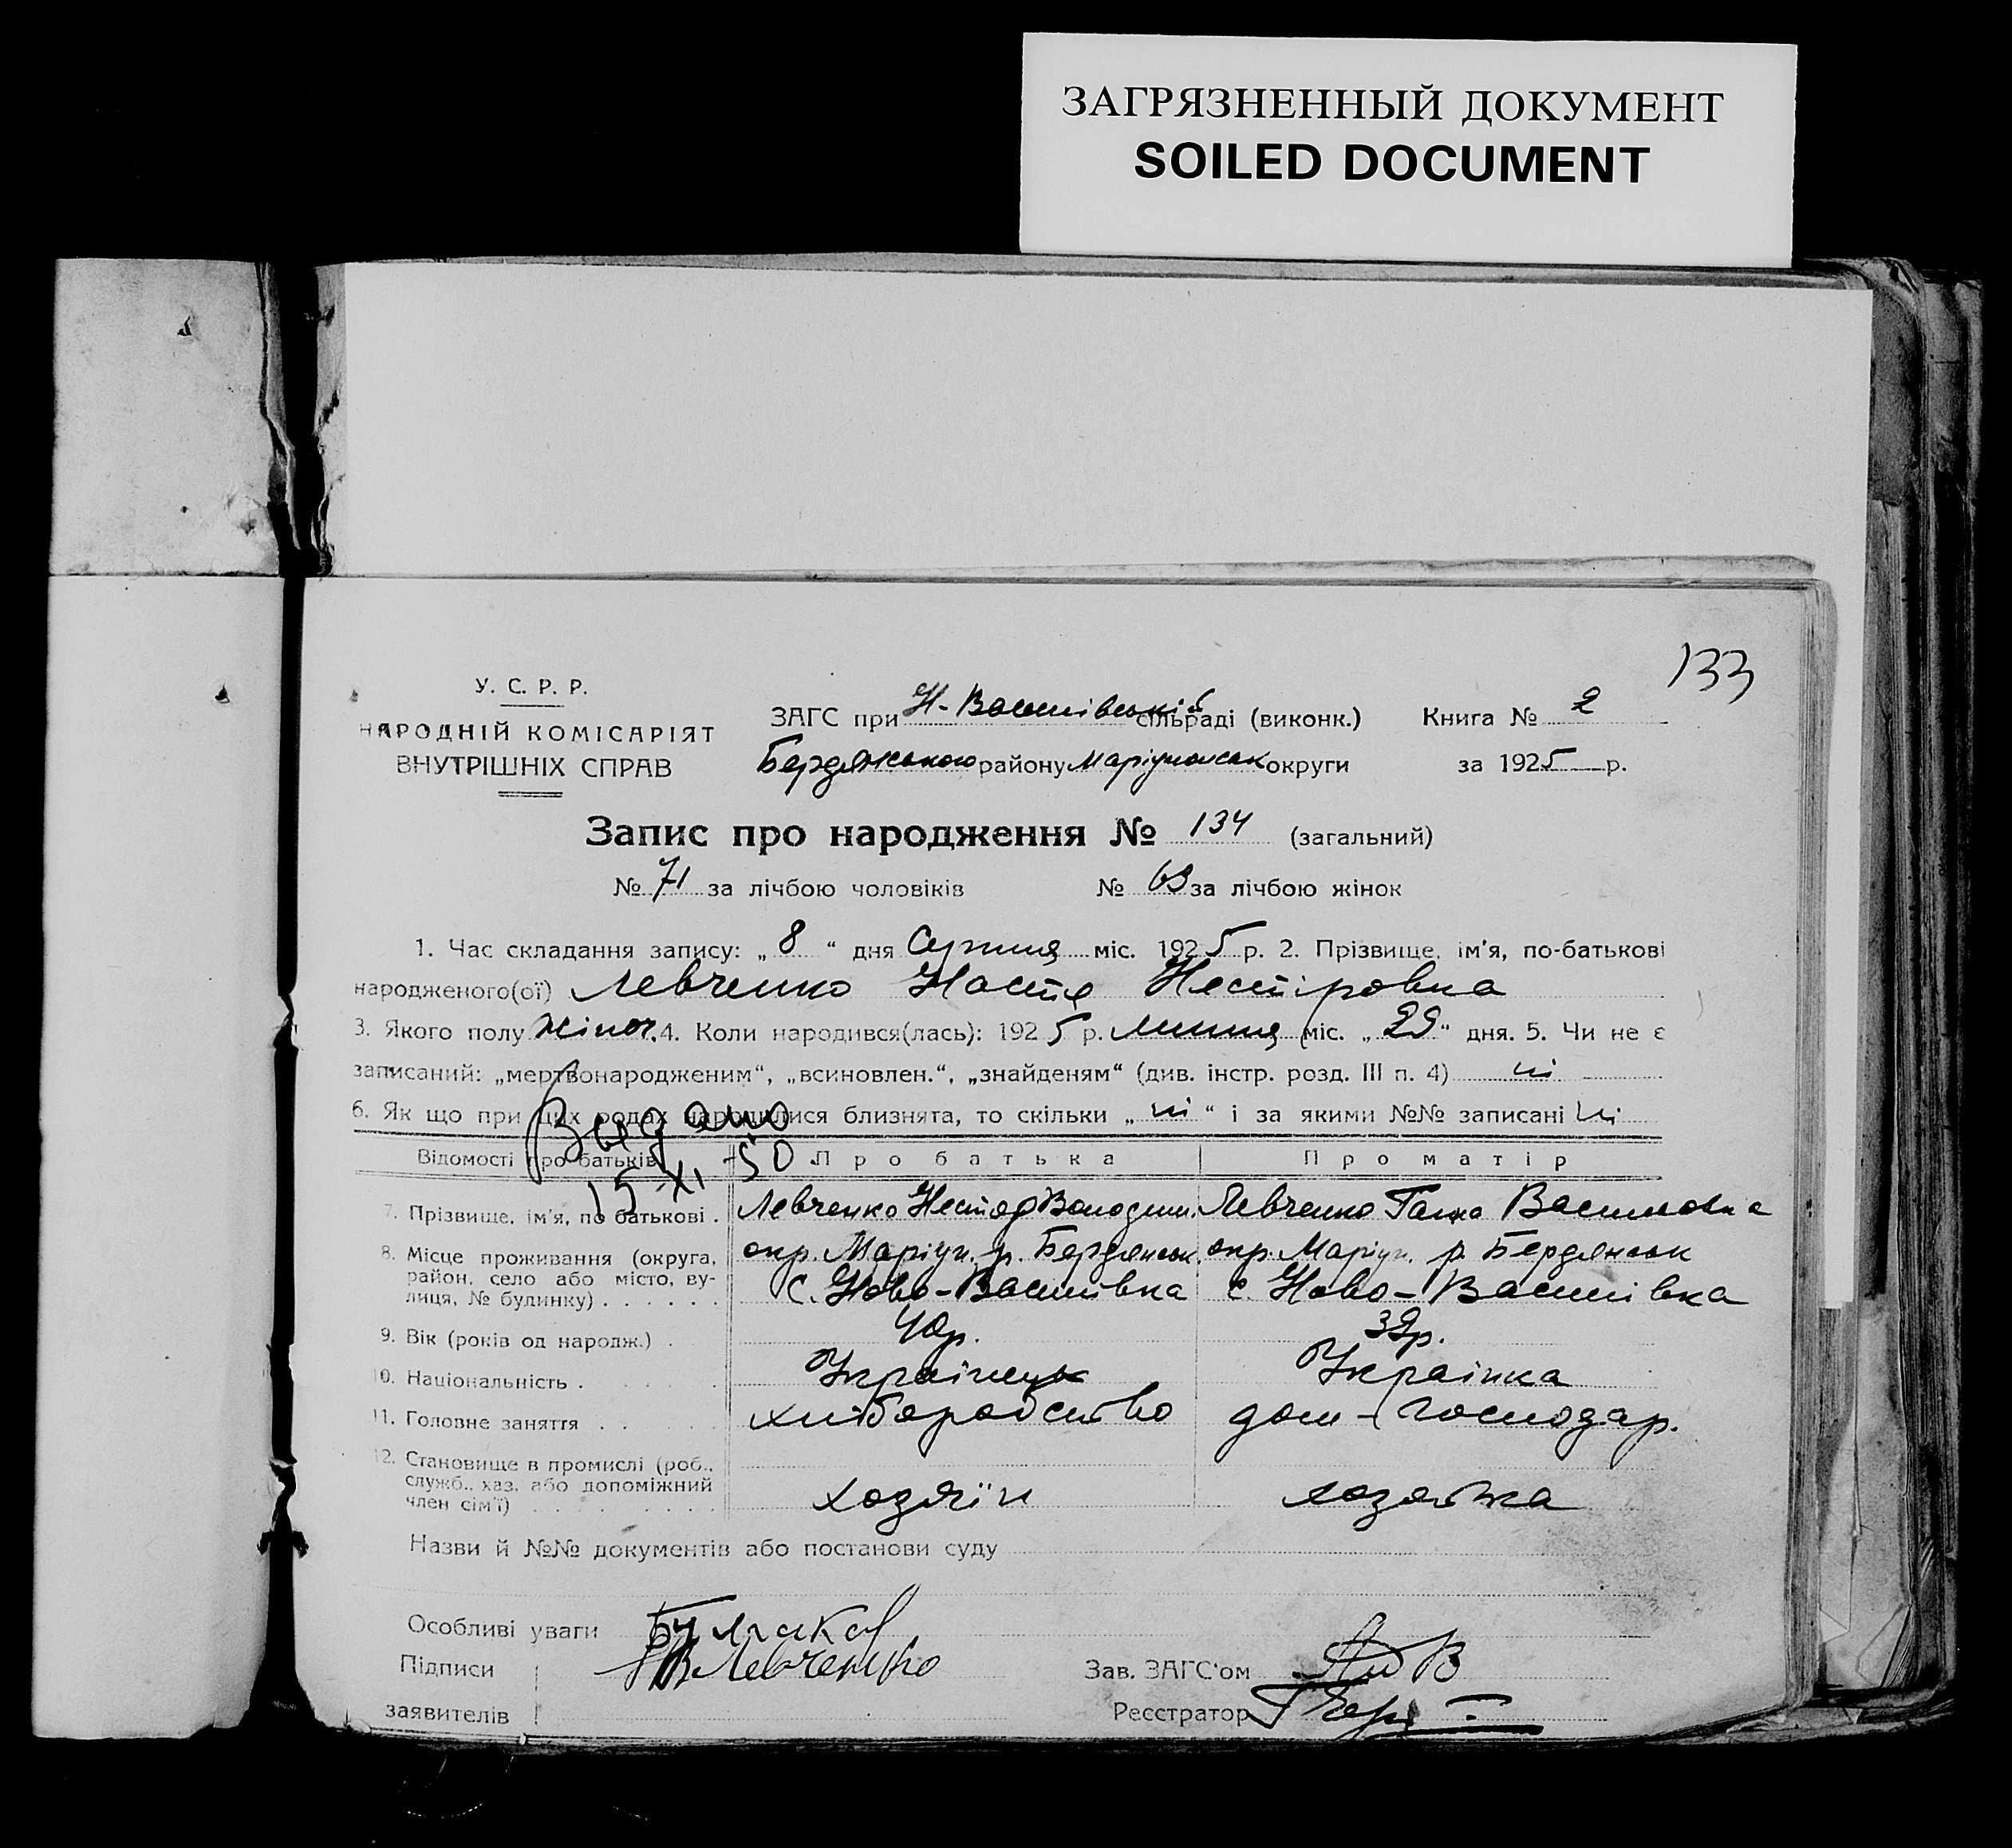 ЗАГРЯЗНЕННЫЙ ДОКУМЕНТ
SOILED DOCUMENT
133
У. С. Р. Р.
НАРОДНІЙ КОМІСАРІЯТ
ВНУТРІШНІХ СПРАВ
ЗАГС при Н-Василівській сільраді (виконк.) Книга № 2
Бердянського району Маріупольськ округи за 1925 р.
Запис про народження № 134 (загальний)
№ 71 за лічбою чоловіків № 63 за лічбою жінок
1. Час складання запису: „ 8 “ дня Серпня міс. 1925 р. 2. Прізвище, ім'я, по-батькові
народженого(ої) Левченко Настя Нестіровна
3. Якого полу жіноч. 4. Коли народився(лась): 1925 р. липня міс. „ 29 “ дня. 5. Чи не є
записаний: „мертвонародженим“, „всиновлен.“, „знайденям“ (див. інстр. розд. III п. 4) ні
6. Як що при цих родах народилися близнята, то скільки „ ні “ і за якими №№ записані ні
Выдано
15-XI-50
Відомості про батьків Про батька Про матір
7. Прізвище, ім'я, по батькові . Левченко Нестор Володим. Левченко Ганна Василовна
8. Місце проживання (округа, район, село або місто, вулиця, № будинку) . . . . . . окр. Маріуп. р. Бердянськ. окр. Маріуп. р. Бердянськ
с. Ново-Василівка с. Ново-Василівка
9. Вік (років од народж.) . 40р. 39р.
10. Національність . Українець Українка
11. Головне заняття . . хліборобство дом-господар.
12. Становище в промислі (роб., служб., хаз. або допоміжний член сім'ї) хозяїн хозяйка
Назви й №№ документів або постанови суду
Особливі уваги
Підписи Левченко Зав. ЗАГС'ом
заявителів Реєстратор